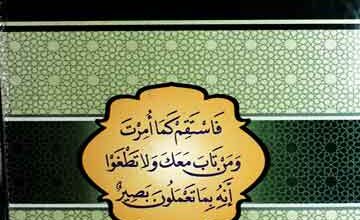 فَاسْتَقِمْ كَمَا أُمِرْتَ
وَمَن تَابَ مَعَكَ وَلَا تَطْغَوْا
إِنَّهُ بِمَا تَعْمَلُونَ بَصِيرٌ